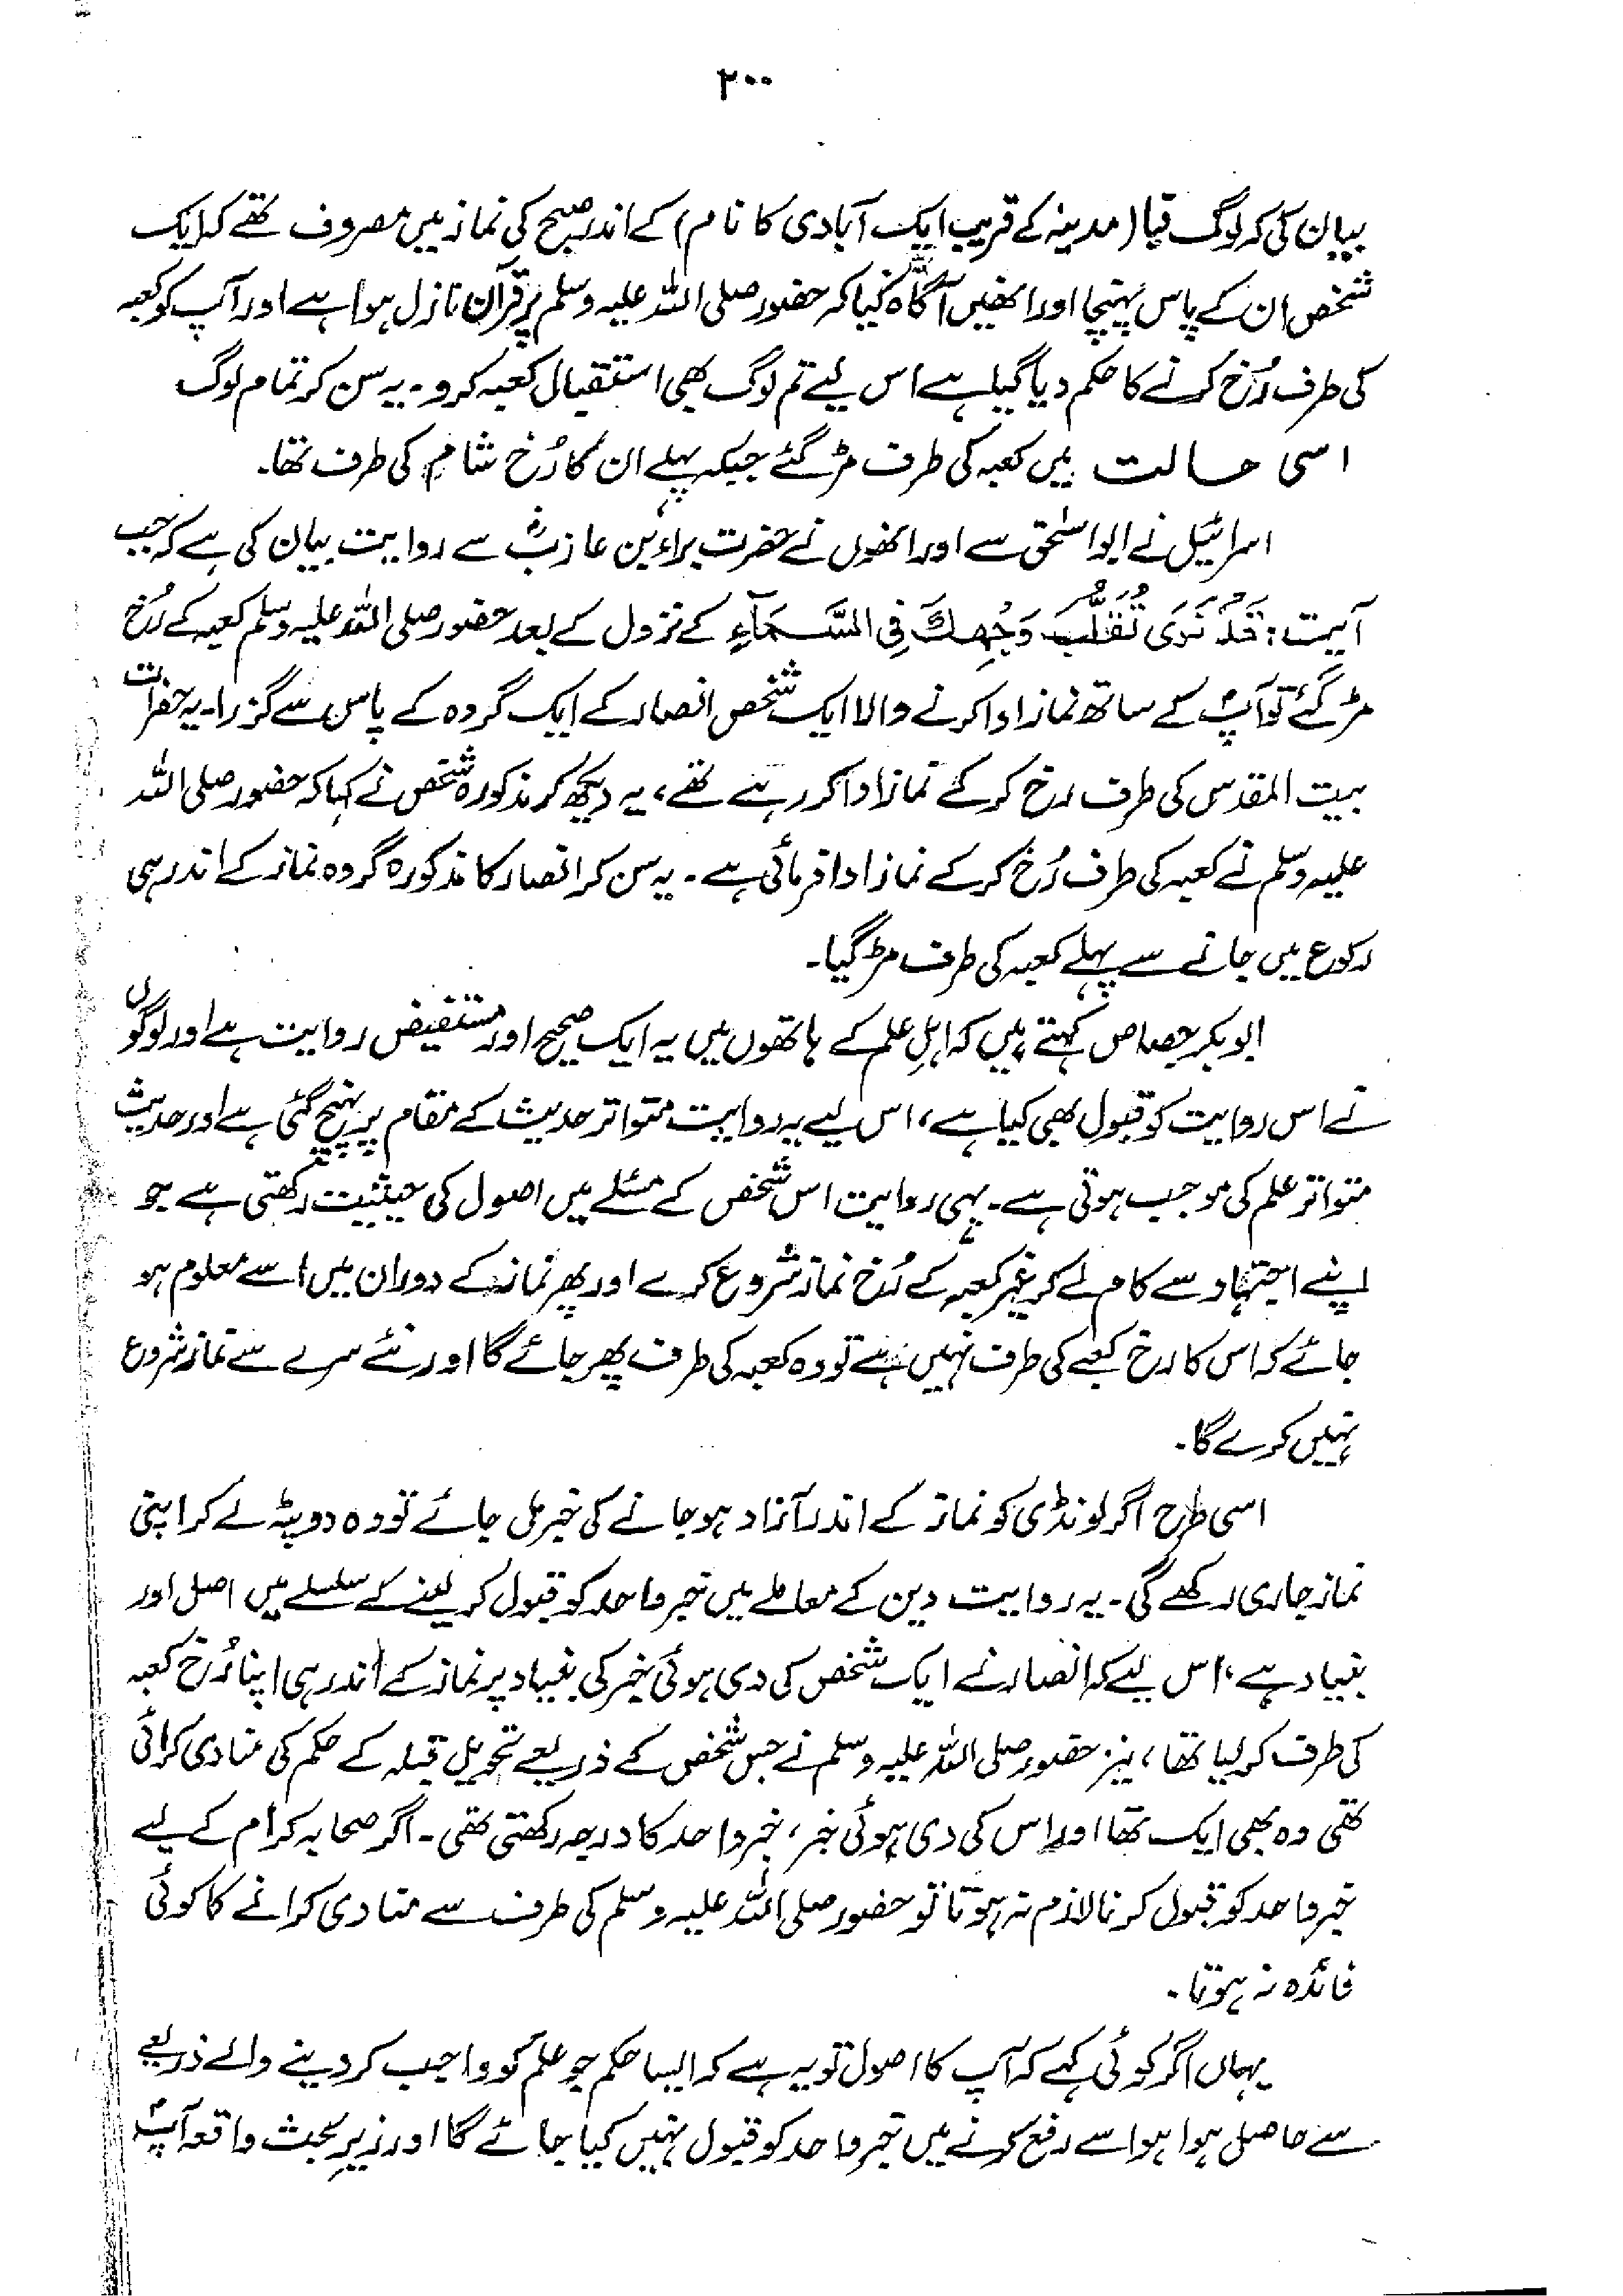 ۲۰۰
بیان کی کہ لوگ قبا (مدینہ کے قریب ایک آبادی کا نام) کے اندر صبح کی نماز میں مصروف تھے کہ ایک
شخص ان کے پاس پہنچا اور انھیں آگاہ کیا کہ حضور صلی اللہ علیہ وسلم پر قرآن نازل ہوا ہے اور آپ کو کعبہ
کی طرف رُخ کرنے کا حکم دیا گیا ہے اس لیے تم لوگ بھی استقبال کعبہ کرو۔ یہ سن کر تمام لوگ
اسی حالت میں کعبہ کی طرف مڑ گئے جبکہ پہلے ان کا رُخ شام کی طرف تھا۔
اسرائیل نے ابو اسحٰق سے اور انھوں نے حضرت براء بن عازبؓ سے روایت بیان کی ہے کہ جب
آیت: قَدْ نَرَى تَقَلُّبَ وَجْهِكَ فِي السَّمَآءِ کے نزول کے بعد حضور صلی اللہ علیہ وسلم کعبہ کے رُخ
مڑ گئے تو آپؐ کے ساتھ نماز ادا کرنے والا ایک شخص انصار کے ایک گروہ کے پاس سے گزرا۔ یہ حضرات
بیت المقدس کی طرف رخ کر کے نماز ادا کر رہے تھے، یہ دیکھ کر مذکورہ شخص نے کہا کہ حضور صلی اللہ
علیہ وسلم نے کعبہ کی طرف رُخ کر کے نماز ادا فرمائی ہے۔ یہ سن کر انصار کا مذکورہ گروہ نماز کے اندر ہی
رکوع میں جانے سے پہلے کعبہ کی طرف مڑ گیا۔
ابو بکر جصاص کہتے ہیں کہ اہلِ علم کے ہاتھوں میں یہ ایک صحیح اور مستفیض روایت ہے اور لوگوں
نے اس روایت کو قبول بھی کیا ہے، اس لیے یہ روایت متواتر حدیث کے مقام پر پہنچ گئی ہے اور حدیث
متواتر علم کی موجب ہوتی ہے۔ یہی روایت اس شخص کے مسئلے میں اصول کی حیثیت رکھتی ہے جو
اپنے اجتہاد سے کام لے کر غیر کعبہ کے رُخ نماز شروع کرے اور پھر نماز کے دوران میں اسے معلوم ہو
جائے کہ اس کا رخ کعبے کی طرف نہیں ہے تو وہ کعبہ کی طرف پھر جائے گا اور نئے سرے سے نماز شروع
نہیں کرے گا۔
اسی طرح اگر لونڈی کو نماز کے اندر آزاد ہو جانے کی خبر مل جائے تو وہ دوپٹہ لے کر اپنی
نماز جاری رکھے گی۔ یہ روایت دین کے معاملے میں خبر واحد کو قبول کر لینے کے سلسلے میں اصل اور
بنیاد ہے، اس لیے کہ انصار نے ایک شخص کی دی ہوئی خبر کی بنیاد پر نماز کے اندر ہی اپنا رُخ کعبہ
کی طرف کر لیا تھا، نیز حضور صلی اللہ علیہ وسلم نے جس شخص کے ذریعے تحویل قبلہ کے حکم کی منادی کرائی
تھی وہ بھی ایک تھا اور اس کی دی ہوئی خبر، خبر واحد کا درجہ رکھتی تھی۔ اگر صحابہ کرام کے لیے
خبر واحد کو قبول کرنا لازم نہ ہوتا تو حضور صلی اللہ علیہ وسلم کی طرف سے منادی کرانے کا کوئی
فائدہ نہ ہوتا۔
یہاں اگر کوئی کہے کہ آپ کا اصول تو یہ ہے کہ ایسا حکم جو علم کو واجب کر دینے والے ذریعے
سے حاصل ہوا ہو اسے رفع کرنے میں خبر واحد کو قبول نہیں کیا جائے گا اور زیرِ بحث واقعہ آپؐ